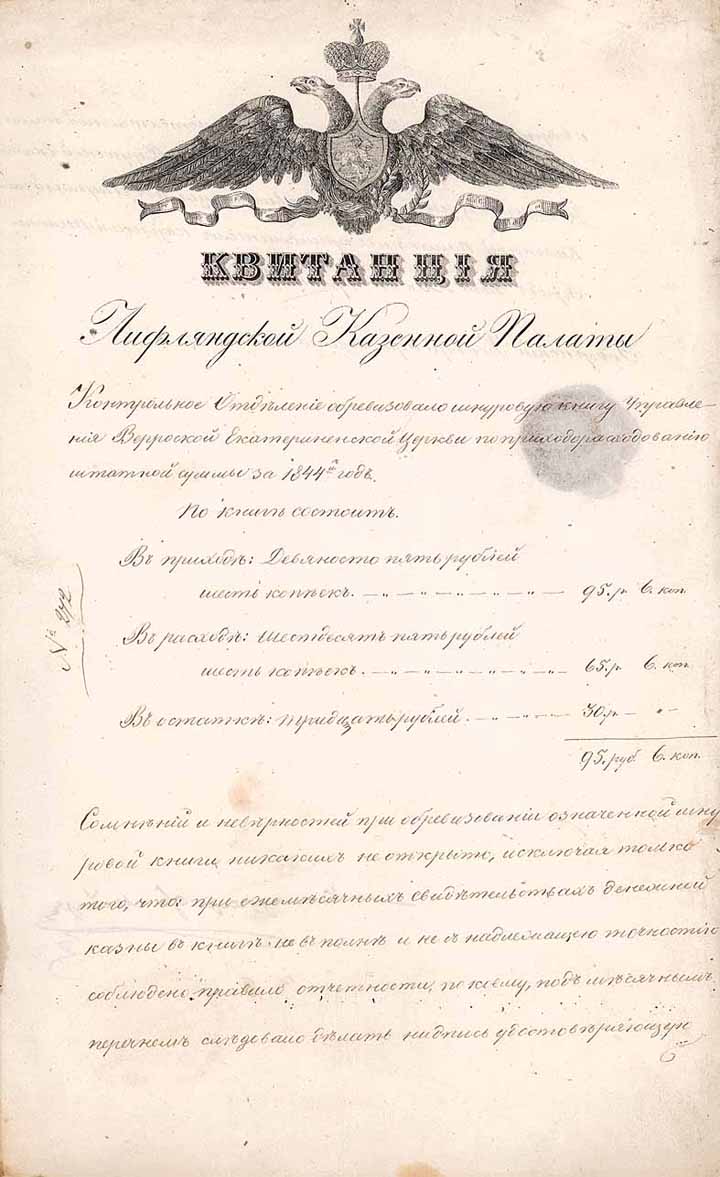 КВИТАНЦІЯ
Лифляндской Казенной Палаты
Контрольное Отдѣленіе обревизовало шнуровую книгу Управле-
нія Верроской Екатерининской Церкви по приходорасходованію
штатной суммы за 1844й годъ.
По книгѣ состоитъ.
Въ приходѣ: Девяносто пять рублей
шесть копѣекъ. — „ — „ — „ — „ — „ — 95. р. 6. коп.
Въ расходѣ: Шестдесятъ пять рублей
шесть копѣекъ. — „ — „ — „ — „ — „ — 65. р. 6. коп.
Въ остаткѣ: тридцать рублей. — „ — „ — „ — 30. р. — „ —
95. руб. 6. коп.
№ 272
Сомнѣній и невѣрностей при обревизованіи означенной шну
ровой книги никакихъ не открыто, исключая только
того, что: при ежемѣсячныхъ свидѣтельствахъ денежной
казны въ книгѣ не въ полнѣ и не съ надлежащею точностію
соблюдено правило отчетности, по коему, подъ мѣсячнымъ
перечнемъ слѣдовало дѣлать надпись удостовѣряющую